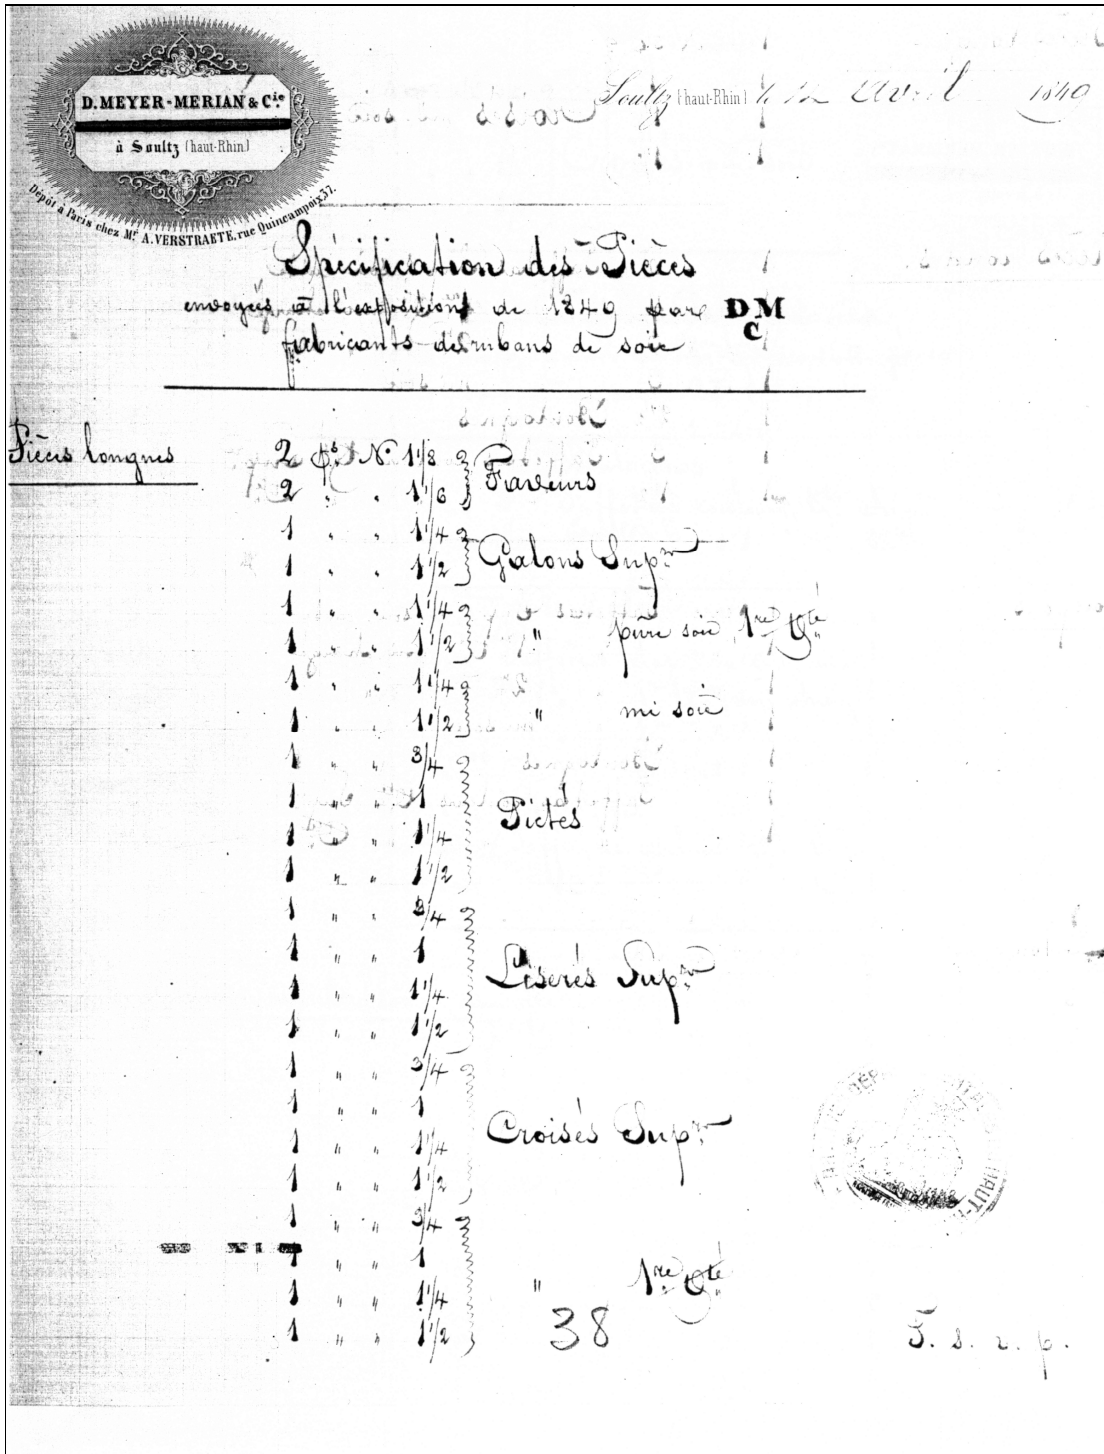 D. MEYER-MERIAN & Cie
à Soultz (haut-Rhin)
Dépôt à Paris chez Mr. A. VERSTRAETE, rue Quincampoix 37.
Soultz (haut-Rhin) le 12 Avril 1849
Spécification des Pièces
envoyées à l'exposition de 1849 par DMC
fabricants de rubans de soie
Pièces longues 2 ps No 1 1/8 Faveurs
2 " " 1 1/6
1 " " 1 1/4 Galons Supr
1 " " 1 1/2
1 " " 1 1/4
1 " " 1 1/2 " pure soie 1re Qté
1 " " 1 1/4
1 " " 1 1/2 " mi soie
1 " " 3/4
1 " " 1 Victés
1 " " 1 1/4
1 " " 1 1/2
1 " " 3/4
1 " " 1 Liserés Supr
1 " " 1 1/4
1 " " 1 1/2
1 " " 3/4
1 " " 1 Croisés Supr
1 " " 1 1/4
1 " " 1 1/2
1 " " 3/4
1 " " 1 " 1re Qté
1 " " 1 1/4
1 " " 1 1/2
38
T. s. v. p.
HAUT-